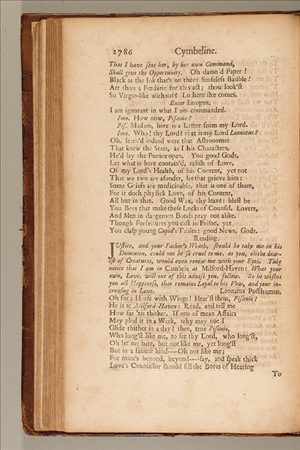 2786 Cymbeline.
That I have sent her, by her own Command,
Shall give thee Opportunity. Oh damn'd Paper!
Black as the Ink that's on thee: Senseless Bauble!
Art thou a Fœdarie for this act; thou look'st
So Virgin-like without? Lo here she comes.
Enter Imogen.
I am ignorant in what I am commanded.
Imo. How now, Pisanio?
Pis. Madam, here is a Letter from my Lord.
Imo. Who! thy Lord? that is my Lord Leonatus?
Oh, learn'd indeed were that Astronomer
That knew the Stars, as I his Characters,
He'd lay the Future open. You good Gods,
Let what is here contain'd, relish of Love,
Of my Lord's Health, of his Content, yet not
That we two are asunder, let that grieve him;
Some Griefs are medicinable, that is one of them,
For it doth physick Love, of his Content,
All but in that. Good Wax, thy leave: blest be
You Bees that make these Locks of Counsel. Lovers,
And Men in dangerous Bonds pray not alike,
Though Forfeitures you cast in Prison, yet
You clasp young Cupid's Tables: good News, Gods.
Reading.
JUstice, and your Father's Wrath, should he take me in his
Dominion, could not be so cruel to me, as you, oh the dear-
est of Creatures, would even renew me with your Eyes. Take
notice that I am in Cambria at Milford-Haven: What your
own, Love, will out of this advise you, follow. So he wishes
you all Happiness, that remains Loyal to his Vow, and your in-
creasing in Love. Leonatus Posthumus.
Oh for a Horse with Wings! Hear'st thou, Pisanio?
He is at Milford-Haven: Read, and tell me
How far 'tis thither. If one of mean Affairs
May plod it in a Week, why may not I
Glide thither in a day? then, true Pisanio,
Who long'st like me, to see thy Lord, who long'st,
Oh let me bate, but not like me, yet long'st
But in a fainter kind---Oh not like me;
For mine's beyond, beyond---say, and speak thick
Love's Counsellor should fill the Bores of Hearing
To